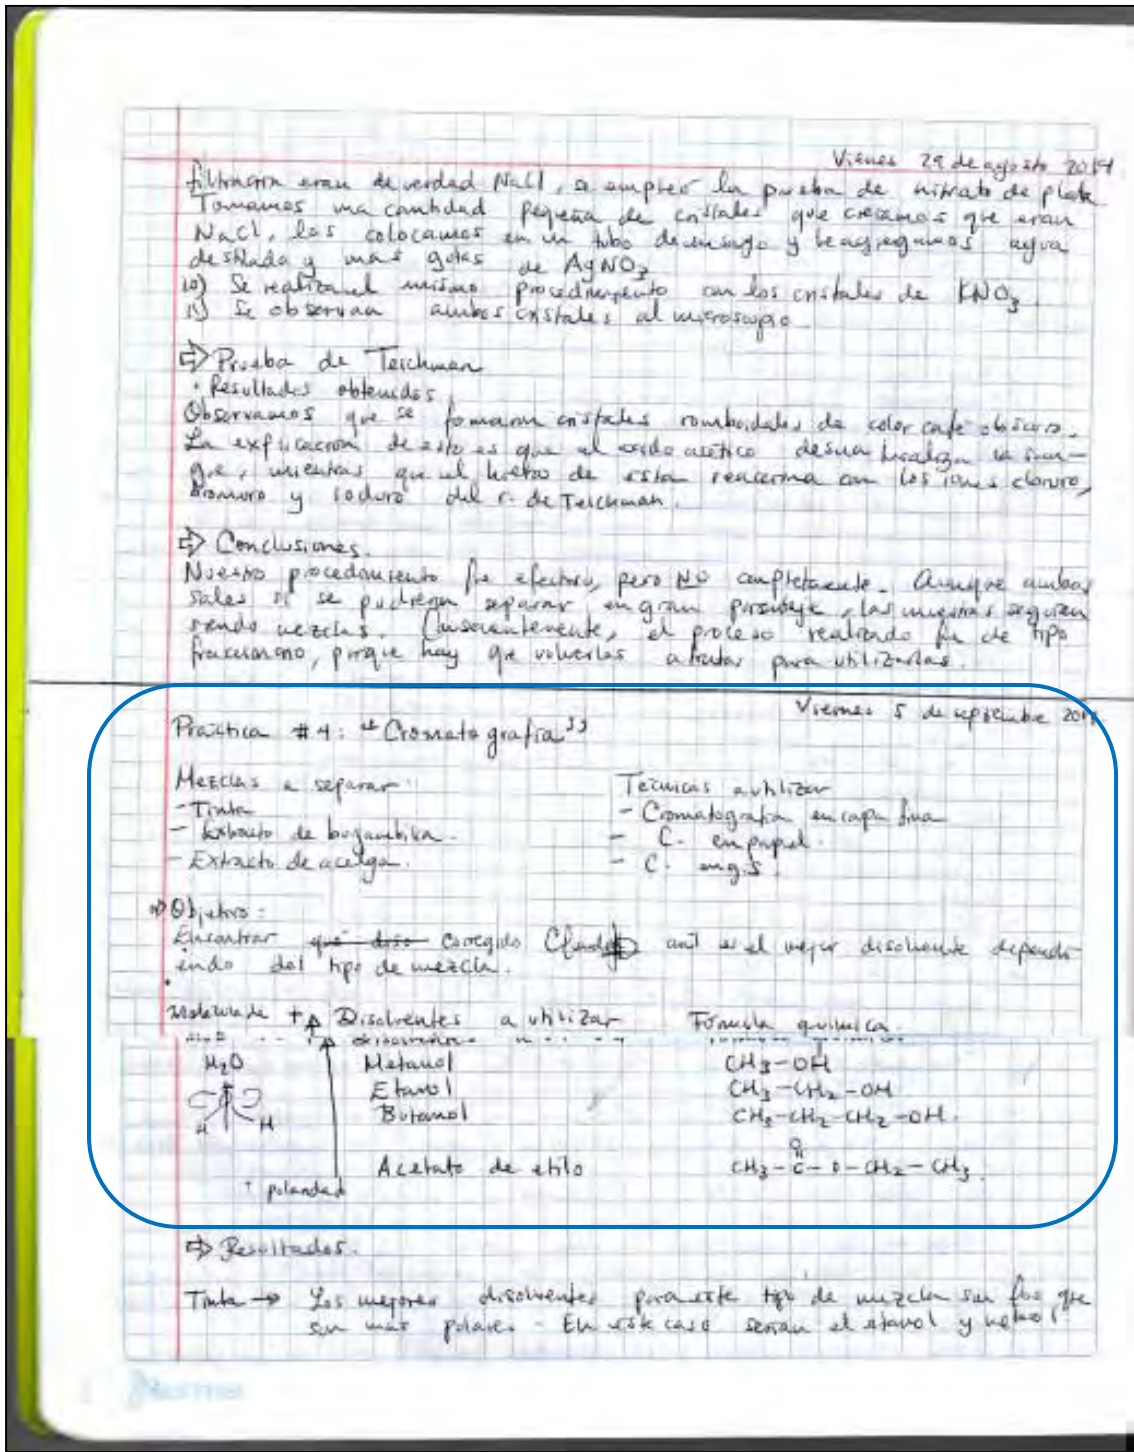 Viernes 29 de agosto 2014
filtración eran de verdad NaCl, se empleó la prueba de nitrato de plata.
Tomamos una cantidad pequeña de cristales que creíamos que eran
NaCl, los colocamos en un tubo de ensayo y le agregamos agua
destilada y unas gotas de AgNO3
10) Se realiza el mismo procedimiento con los cristales de KNO3
11) Se observan ambos cristales al microscopio
⇒ Prueba de Teichman
• Resultados obtenidos
Observamos que se formaron cristales romboidales de color café obscuro.
La explicación de esto es que el ácido acético la san-
gre, mientras que el hierro de esta reacciona con los iones cloruro,
bromuro y ioduro del r. de Teichman.
⇒ Conclusiones.
Nuestro procedimiento fue efectivo, pero NO completamente. Aunque ambas
sales si se pudieron separar en gran las muestras seguían
siendo mezclas. el proceso realizado fue de tipo
porque hay que volverlas a tratar para utilizarlas.
Viernes 5 de septiembre 2014
Práctica #4: "Cromatografía"
Mezclas a separar:
- Tinta
- Extracto de bugambilia.
- Extracto de acelga.
Técnicas a utilizar
- Cromatografía en capa fina
- C. en papel.
- C. en g.s.
⇒ Objetivo:
Encontrar que diso corregido cual es el mejor disolvente depend-
iendo del tipo de mezcla.
Molécula de + Disolventes a utilizar Fórmula química.
H2O Metanol CH3-OH
Etanol CH3-CH2-OH
H H Butanol CH3-CH2-CH2-OH.
O
Acetato de etilo CH3-C-O-CH2-CH3.
+ polaridad
⇒ Resultados.
Tinta → Los mejores disolventes para este tipo de mezcla son los que
son más polares. En este caso serían el etanol y